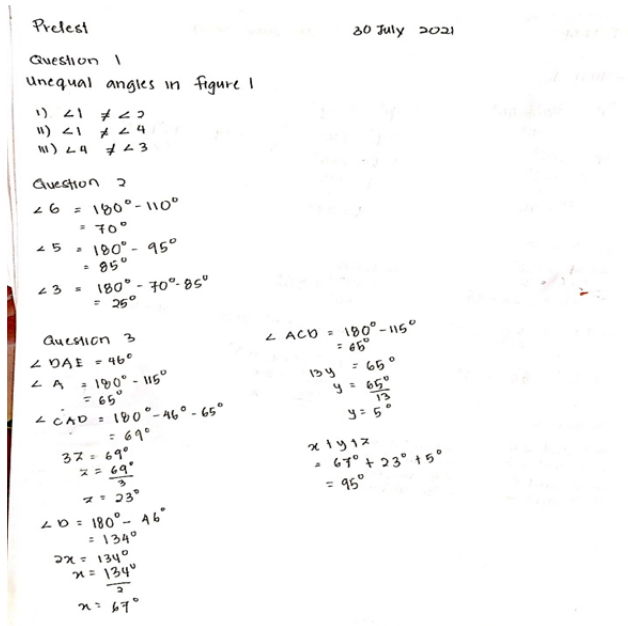 Pretest
30 July 2021
Question 1
Unequal angles in figure 1
i) ∠1 ≠ ∠2
ii) ∠1 ≠ ∠4
iii) ∠4 ≠ ∠3
Question 2
∠6 = 180° - 110°
= 70°
∠5 = 180° - 95°
= 85°
∠3 = 180° - 70° - 85°
= 25°
Question 3
∠DAE = 46°
∠A = 180° - 115°
= 65°
∠CAD = 180° - 46° - 65°
= 69°
3z = 69°
z = 69°/3
z = 23°
∠D = 180° - 46°
= 134°
2x = 134°
x = 134°/2
x = 67°
∠ACD = 180° - 115°
= 65°
13y = 65°
y = 65°/13
y = 5°
x + y + z
= 67° + 23° + 5°
= 95°